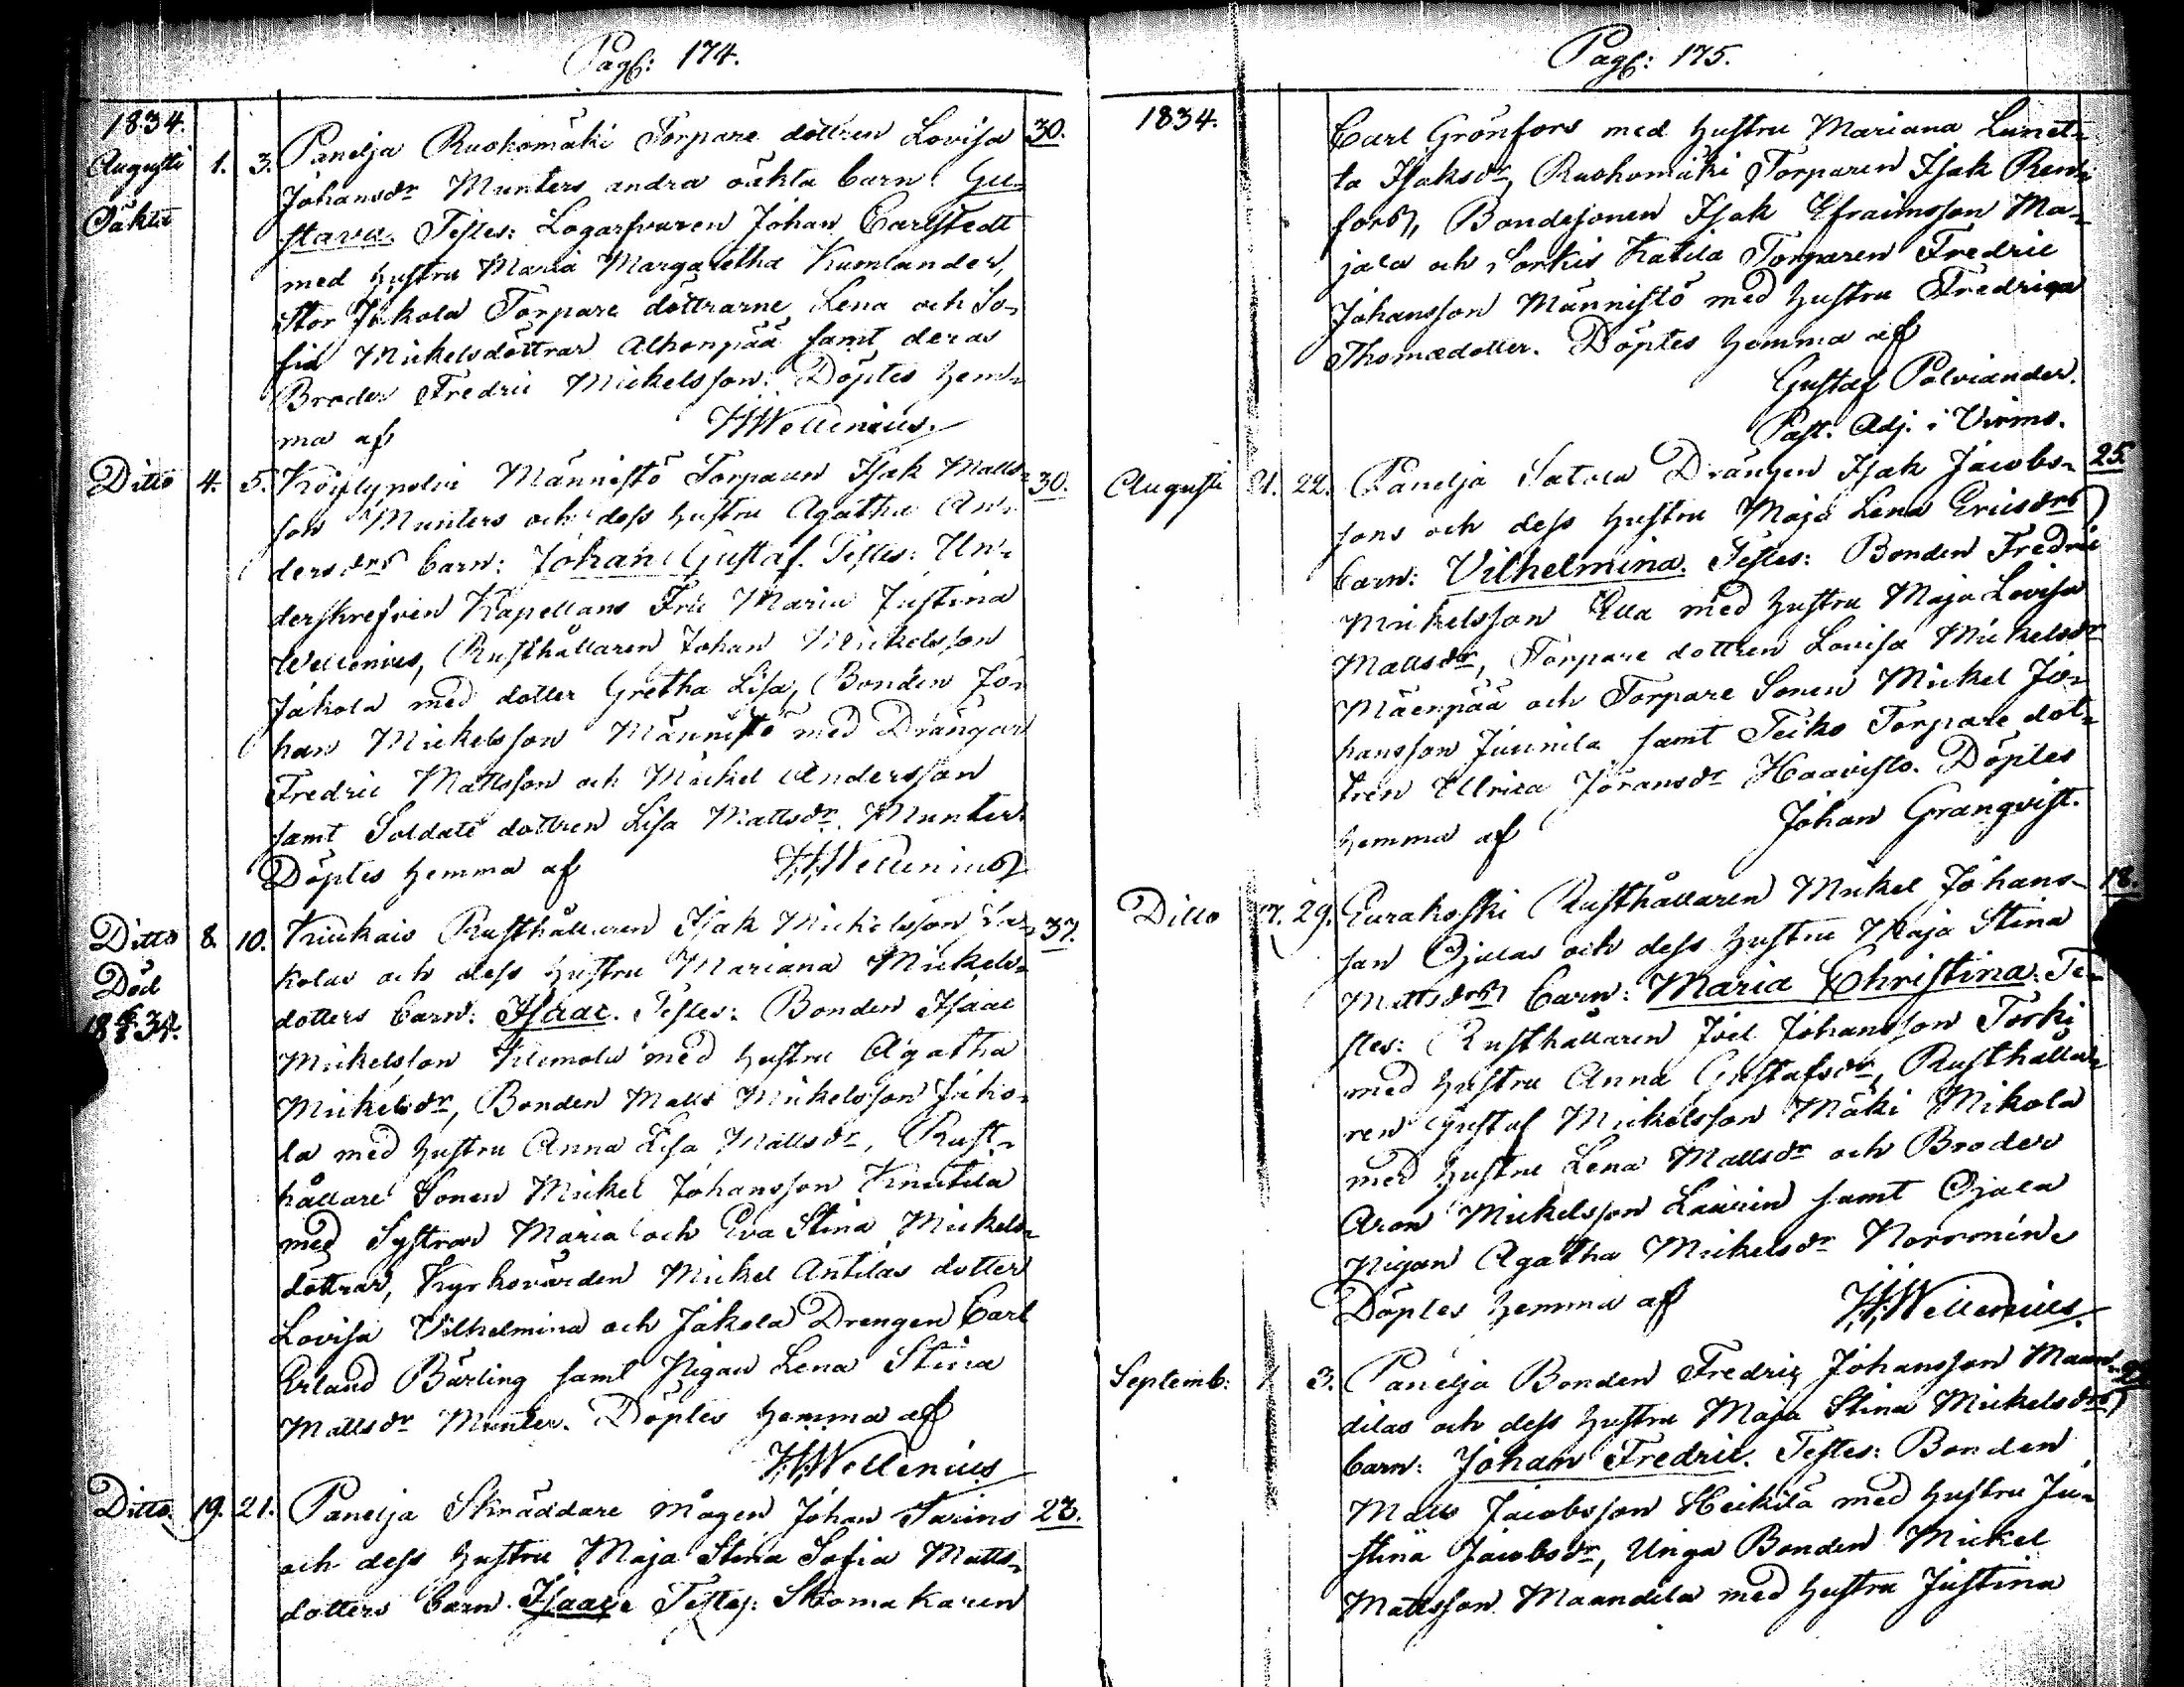 Pag: 174.
1834.
Augusti 1. 3. Panelja Ruohomäki Torpare dottren Lovisa 30.
Oäkta Johansdr Munters andra oäkta barn: Gu-
stava. Testes: Logarfvaren Johan Carlstedt
med hustru Maria Margaretha Kumlander,
Stor Jakola Torpare döttrarne Lena och So-
fia Mickelsdöttrar Alhonpää samt deras
Broder Fredric Mickelsson. Döptes hem-
ma af HWellenius.
Ditto 4. 5. Köylypolvi Männistö Torparen Isak Matts- 30.
son Munters och dess hustru Agatha An-
dersdrs barn: Johan Gustaf. Testes: Un-
derskrefven Kapellans Fru Maria Justina
Wellenius, Rusthållaren Johan Mickelsson
Jakola med dotter Gretha Lisa, Bonden Jo-
han Mickelsson Männistö med Drängar
Fredric Mattsson och Mickel Andersson
samt Soldate dottren Lisa Mattsdr Munter.
Döptes hemma af HWellenius
Ditto 8. 10. Kiukais Rusthållaren Isak Mickelsson Ja- 37.
Död kolas och dess hustru Mariana Mickels-
dotters barn: Isaac. Testes: Bonden Isaac
Mickelsson Vilemola med hustru Agatha
Mickelsdr, Bonden Matts Mickelsson Jako-
la med hustru Anna Lisa Mattsdr, Rust-
hållare Sonen Mickel Johansson Knutila
med Systrar Maria och Eva Stina Mickels-
döttrar, Kyrkovärden Mickel Antilas dotter
Lovisa Vilhelmina och Jakola Drengen Carl
Erland Bärling samt Pigan Lena Stina
Mattsdr Munter. Döptes hemma af
HWellenius
Ditto. 19. 21. Panelja Skräddare mågen Johan Tarins 23.
och dess hustru Maja Stina Sofia Matts-
dotters barn. Isaac. Testes: Skomakaren
Pag: 175.
1834.
Carl Grönfors med hustru Mariana Lunet-
ta Isaksdr, Ruohomäki Torparen Isak Ren-
fors, Bondesonen Isak Efraimsson Ma-
jala och Sorkis Katila Torparen Fredric
Johansson Männistö med hustru Fredriqa
Thomædotter. Döptes hemma af
Gustaf Polviander.
Past. Adj. i Virmo.
Augusti 21. 22. Panelja Satola Drängen Isak Jacobs- 25.
sons och dess hustru Maja Lena Ericsdrs
barn: Vilhelmina. Testes: Bonden Fredric
Mickelsson Ella med hustru Maja Lovisa
Mattsdr, Torpare dottren Lovisa Mickelsdr
Mäenpää och Torpare Sonen Mickel Jo-
hansson Junnila samt Teiko Torpare dot-
tren Ullrica Jöransdr Haavisto. Döptes
hemma af Johan Granqvist.
Ditto 27. 29. Eurakoski Rusthållaren Mickel Johans- 18.
son Ojalas och dess hustru Maja Stina
Mattsdrs barn: Maria Christina. Te-
stes: Rusthållaren Joel Johansson Torki
med hustru Anna Gustafsdr, Rusthålla-
ren Gustaf Mickelsson Mäki Mikola
med hustru Lena Mattsdr och Broder
Aron Mickelsson Laurin samt Ojala
Pigan Agatha Mickelsdr Norrmin.
Döptes hemma af HWellenius.
Septemb: 1. 3. Panelja Bonden Fredric Johansson Maan-
dilas och dess hustru Maja Stina Mickelsdrs
barn: Johan Fredric. Testes: Bonden
Matts Jacobsson Heikilä med hustru Ju-
stina Jacobsdr, Unga Bonden Mickel
Mattsson Maandila med hustru Justina